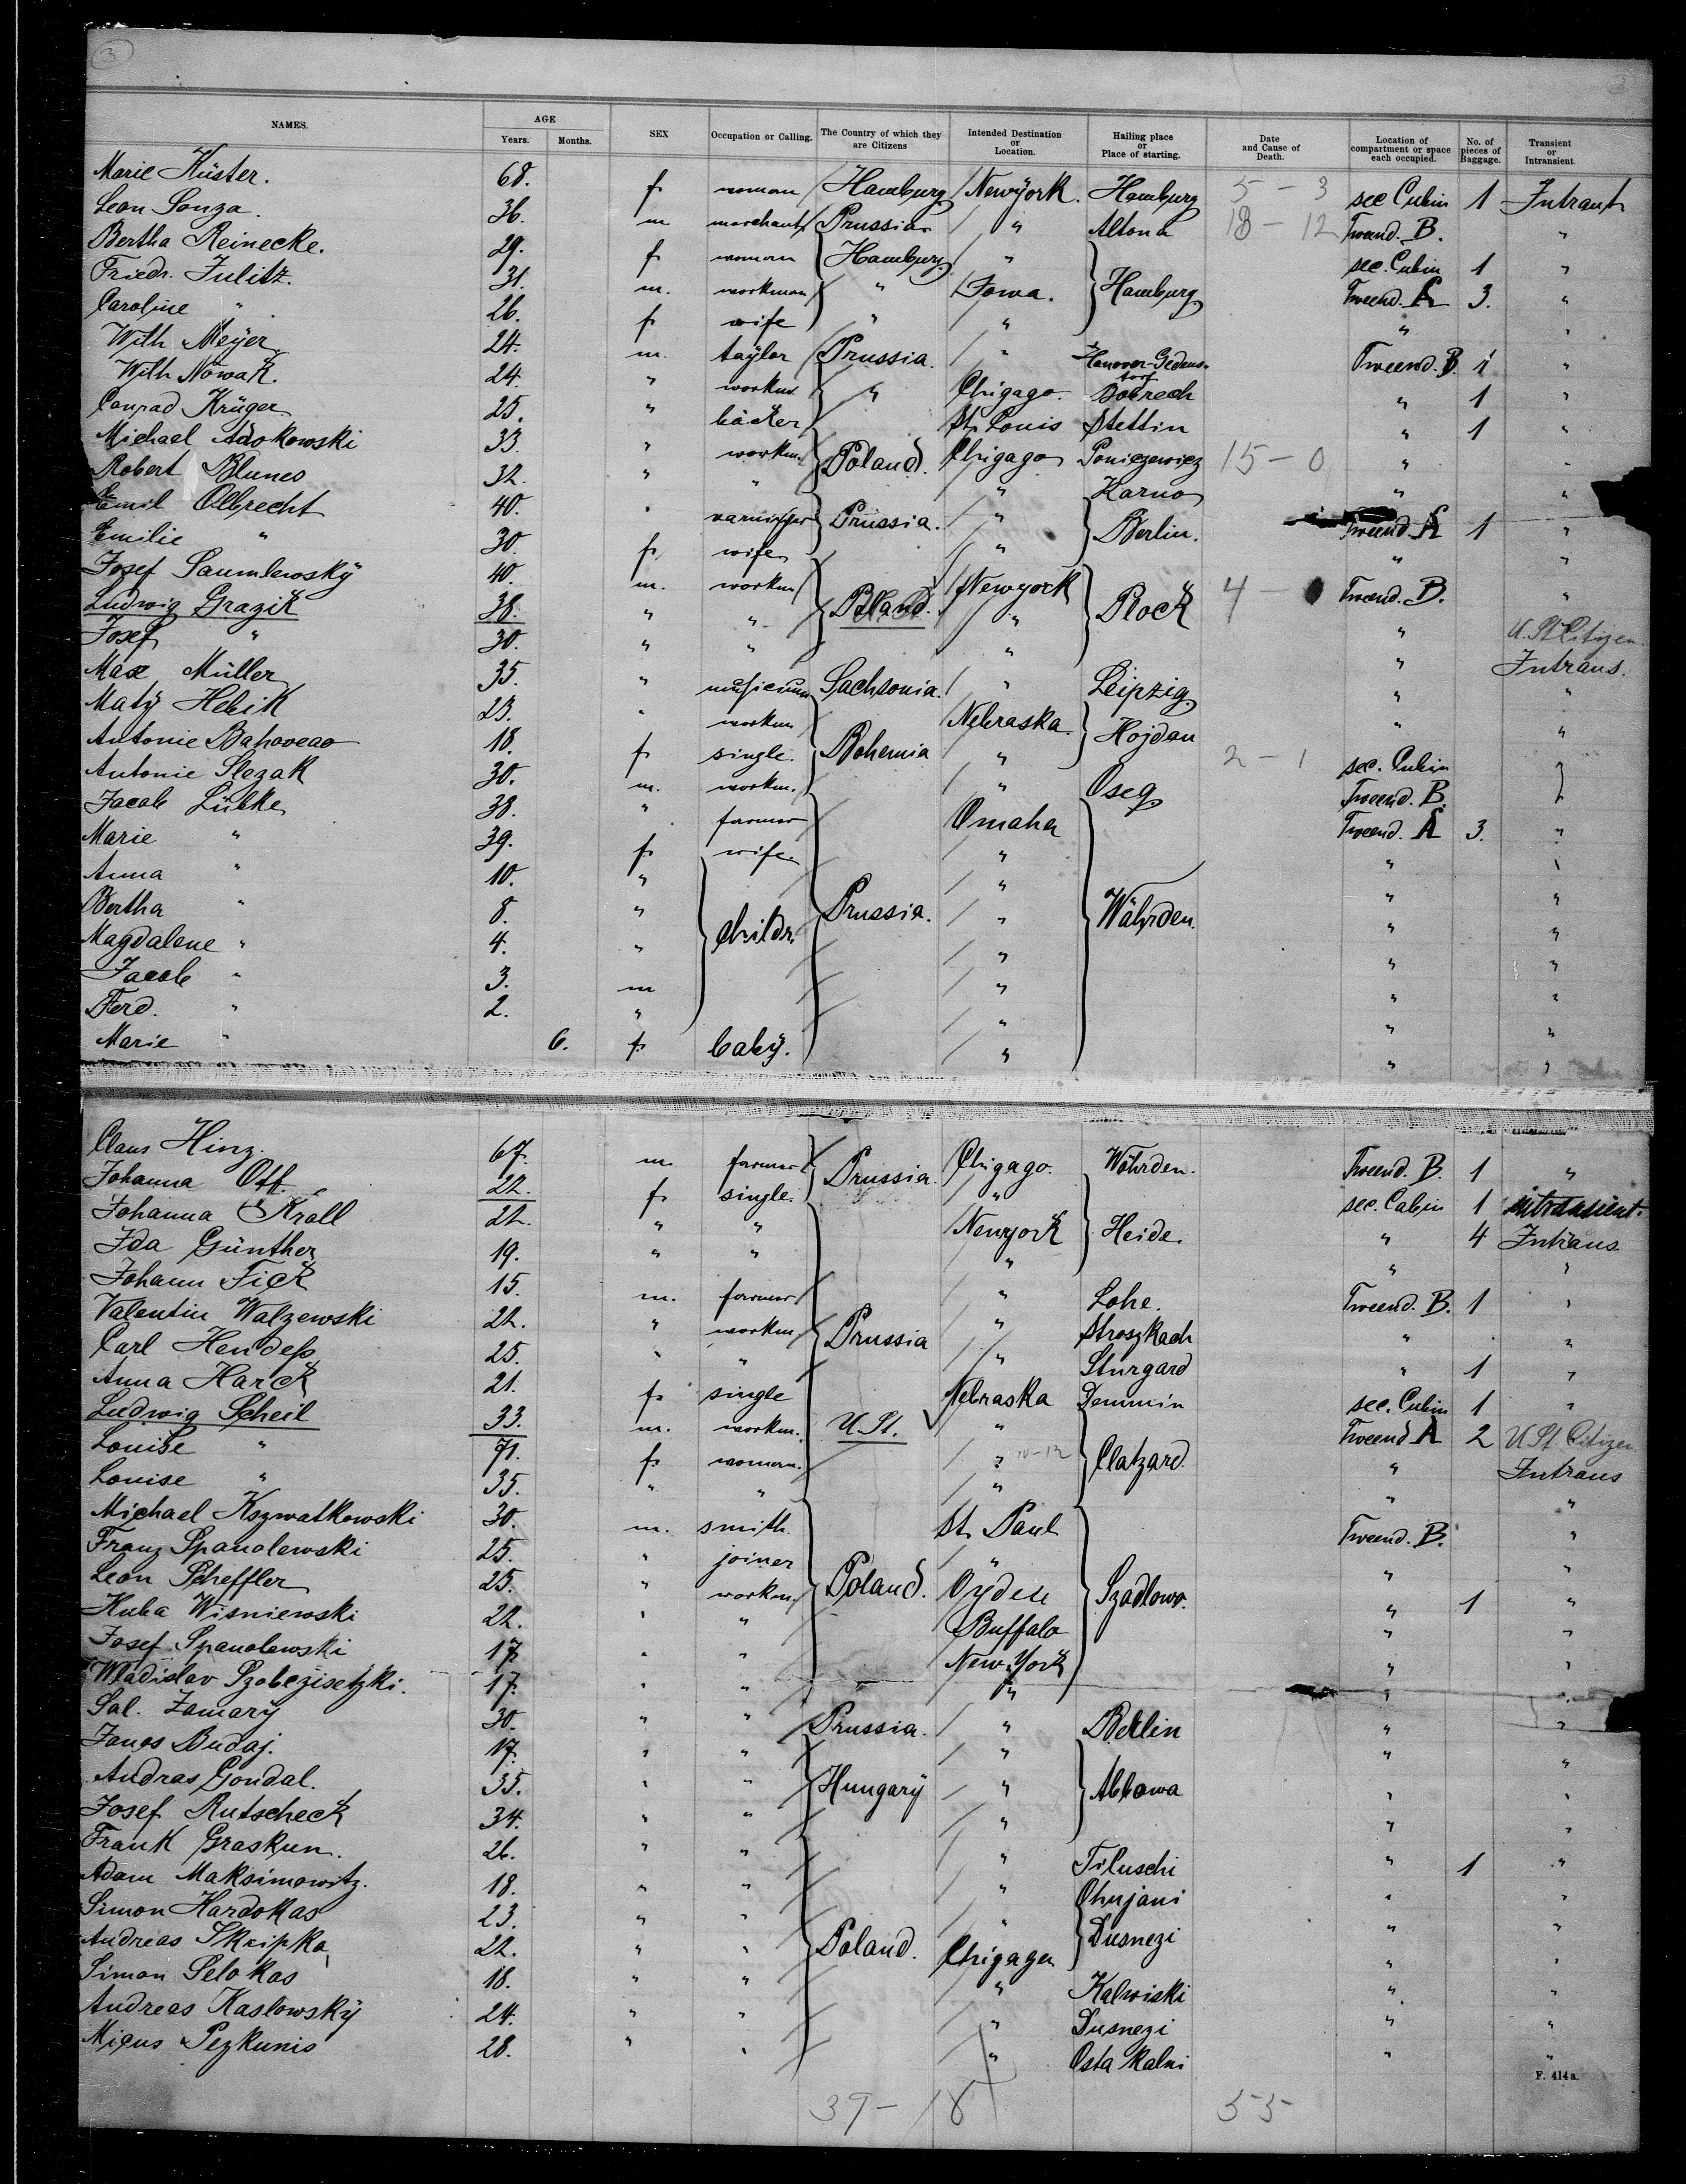 3
NAMES. AGE Years. Months. SEX Occupation or Calling. The Country of which they are Citizens Intended Destination or Location. Hailing place or Place of starting. Date and Cause of Death. Location of compartment or space each occupied. No. of pieces of Baggage. Transient or Intransient.
Marie Küster. 68. f woman Hamburg Newyork. Hamburg 5 - 3 sec Cabin 1 Intrant
Leon Sonza. 36. m merchant Prussia " Altona 18 - 12 Tweend. B. "
Bertha Reinecke. 29. f woman Hamburg " Hamburg sec. Cabin 1 "
Friedr. Julitz. 31. m. workman " Iowa. Tweend. A 3. "
Caroline " 26. f wife " " " "
Wilh Meyer 24. m. taylor Prussia. " Hanover-Gedens-torf Tweend. B. 1 "
Wilh Nowak. 24. " workm " Chigago. Bobrech " 1 "
Conrad Krüger 25. " bäcker St. Louis Stettin " 1 "
Michael Adokowski 33. " workm. Poland. Chigago Poniezewiez 15 - 0 " "
Robert Blunes 32. " " " Karno " "
Emil Olbrecht 40. " Prussia. " Berlin. Tweend. A 1 "
Emilie " 30. f wife " " "
Josef Saumlewsky 40. m. workm Poland. Newyork Plock 4 - 0 Tweend. B. "
Ludwig Grazik 38. " " " " U. St Citizen
Josef " 30. " " " " Intrans.
Max Müller 35. " musicum Sachsonia. " Leipzig " "
Maty Hebik 23. " workm Bohemia Nebraska. Hojdan " "
Antonie Bahoveao 18. f single. " 2 - 1 sec. Cabin "
Antonie Slezak 30. m. workm. " Oseg Tweend. B. "
Jacob Lübke 38. " farmer Prussia. Omaha Währden. Tweend. A 3. "
Marie " 39. f wife " " "
Anna " 10. " Childr. " " "
Bertha " 8. " " " "
Magdalene " 4. " " " "
Jacob " 3. m " " "
Ferd. " 2. " " " "
Marie " 6. f baby. " " "
Claus Hinz. 67. m. farmer Prussia. Chigago. Wöhrden. Tweend. B. 1 "
Johanna Off. 22. f single. " Heide. sec. Cabin 1 intransient.
Johanna Kroll 22. " " Prussia Newyork " 4 Intrans
Ida Günther 19. " " " " "
Johann Fick 15. m. farmer " Lohe. Tweend. B. 1 "
Valentin Walzewski 22. " workm " Stroszkach " "
Carl Hendeß 25. " " " Sturgard " 1 "
Anna Harck 21. f single Nebraska Demmin sec. Cabin 1 "
Ludwig Scheil 33. m. workm. U. St. " Clatzard. Tweend A 2 U St Citizen
Louise " 71. f woman. " 10-12 " Intrans
Louise " 35. " " " " "
Michael Kszwatkowski 30. m. smith. Poland. St. Paul Szadlowo. Tweend. B. "
Franz Spanolewski 25. " joiner " "
Leon Scheffler 25. " workm. Oyden " 1 "
Kuba Wisniewski 22. " " Buffalo " "
Josef Spanolewski 17. " " New York " "
Wladislav Szobczisetzki. 17. " " " " "
Sal. Zamary 30. " " Prussia. " Berlin " "
Janos Budaj. 17. " " Hungary " Abbowa " "
Andras Gondal. 35. " " " " "
Josef Rutscheck 34. " " " " "
Frank Graskun. 26. " " Poland. " Tiluschi " 1 "
Adam Maksimowitz. 18. " " " Chujani " "
Simon Hardokas 23. " " " Dusnezi " "
Andreas Skripka 22. " " Chigago " "
Simon Selokas 18. " " " Kalwiski " "
Andreas Kaslowsky 24. " " " Dusnezi " "
Micus Pezkunis 28. " " " Osta Kalni " "
F. 414 a.
37 - 18 55